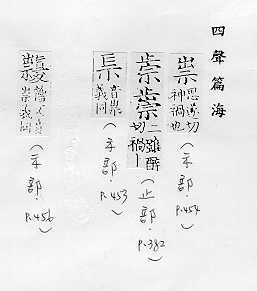 四聲篇海
祟 思遂切神禍也（示部．P.454）
二雖醉切禍丨（止部．P.382）
音祟義同（示部．P.453）
祟義同（示部．P.456）